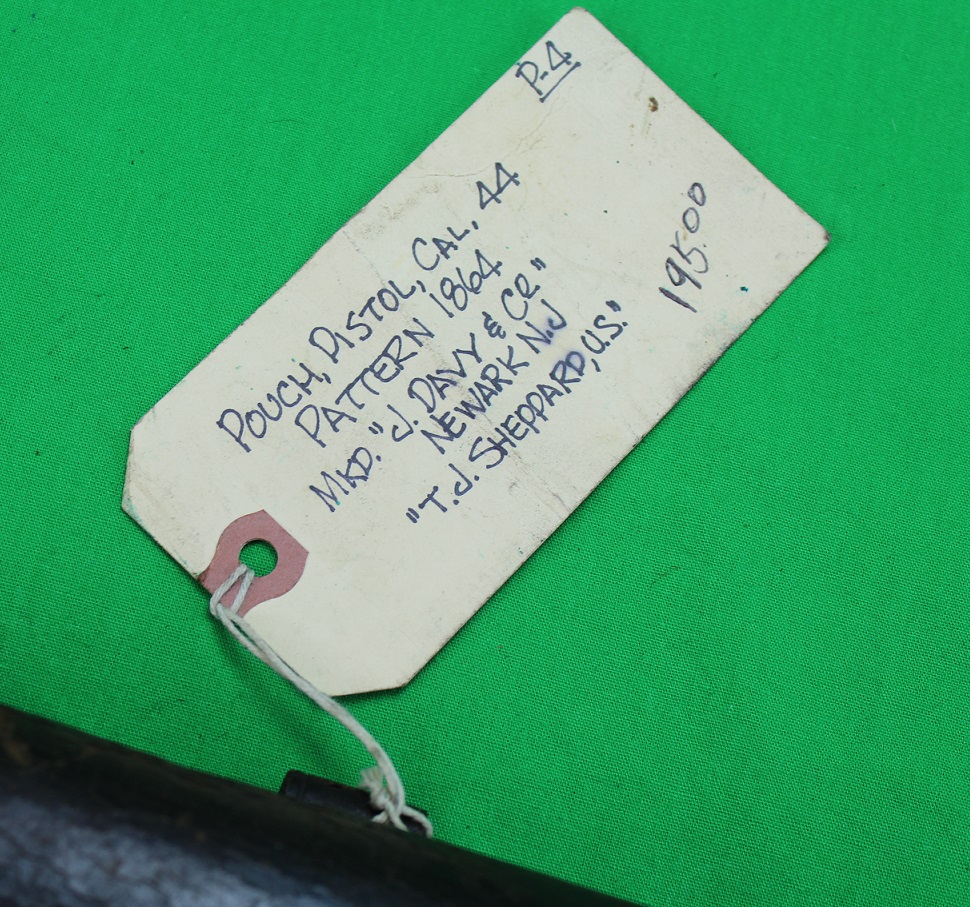 P-4
POUCH, PISTOL, CAL. 44
PATTERN 1864
MKD. "J. DAVY & CO"
NEWARK N.J
"T.J. SHEPPARD, U.S."
195.00